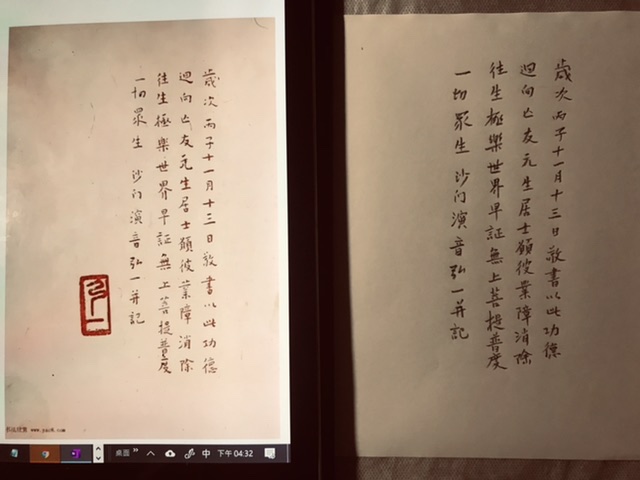 歲次丙子十一月十三日敬書以此功德
迴向亡友元生居士願彼業障消除
往生極樂世界早証無上菩提普度
一切眾生 沙门演音弘一并記
桌面
中
下午 04:32
歲次丙子十一月十三日敬書以此功德
迴向亡友元生居士願彼業障消除
往生極樂世界早証無上菩提普度
一切眾生 沙门演音弘一并記